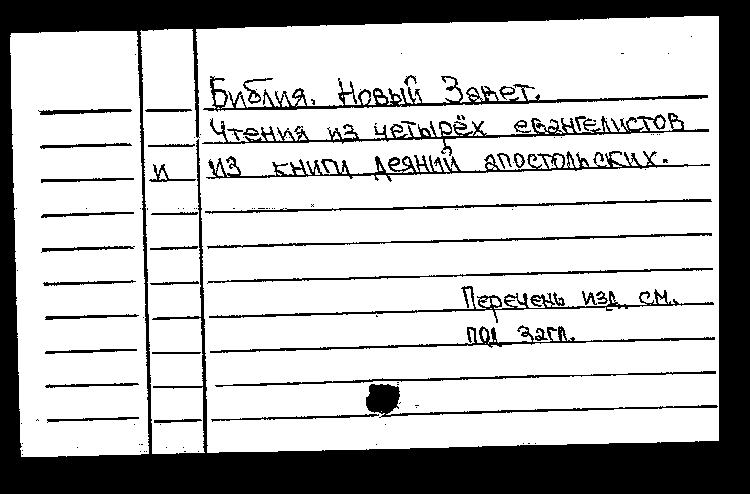 Библия. Новый Завет.
Чтения из четырёх евангелистов
и из книги деяний апостольских.
Перечень изд. см.
под загл.